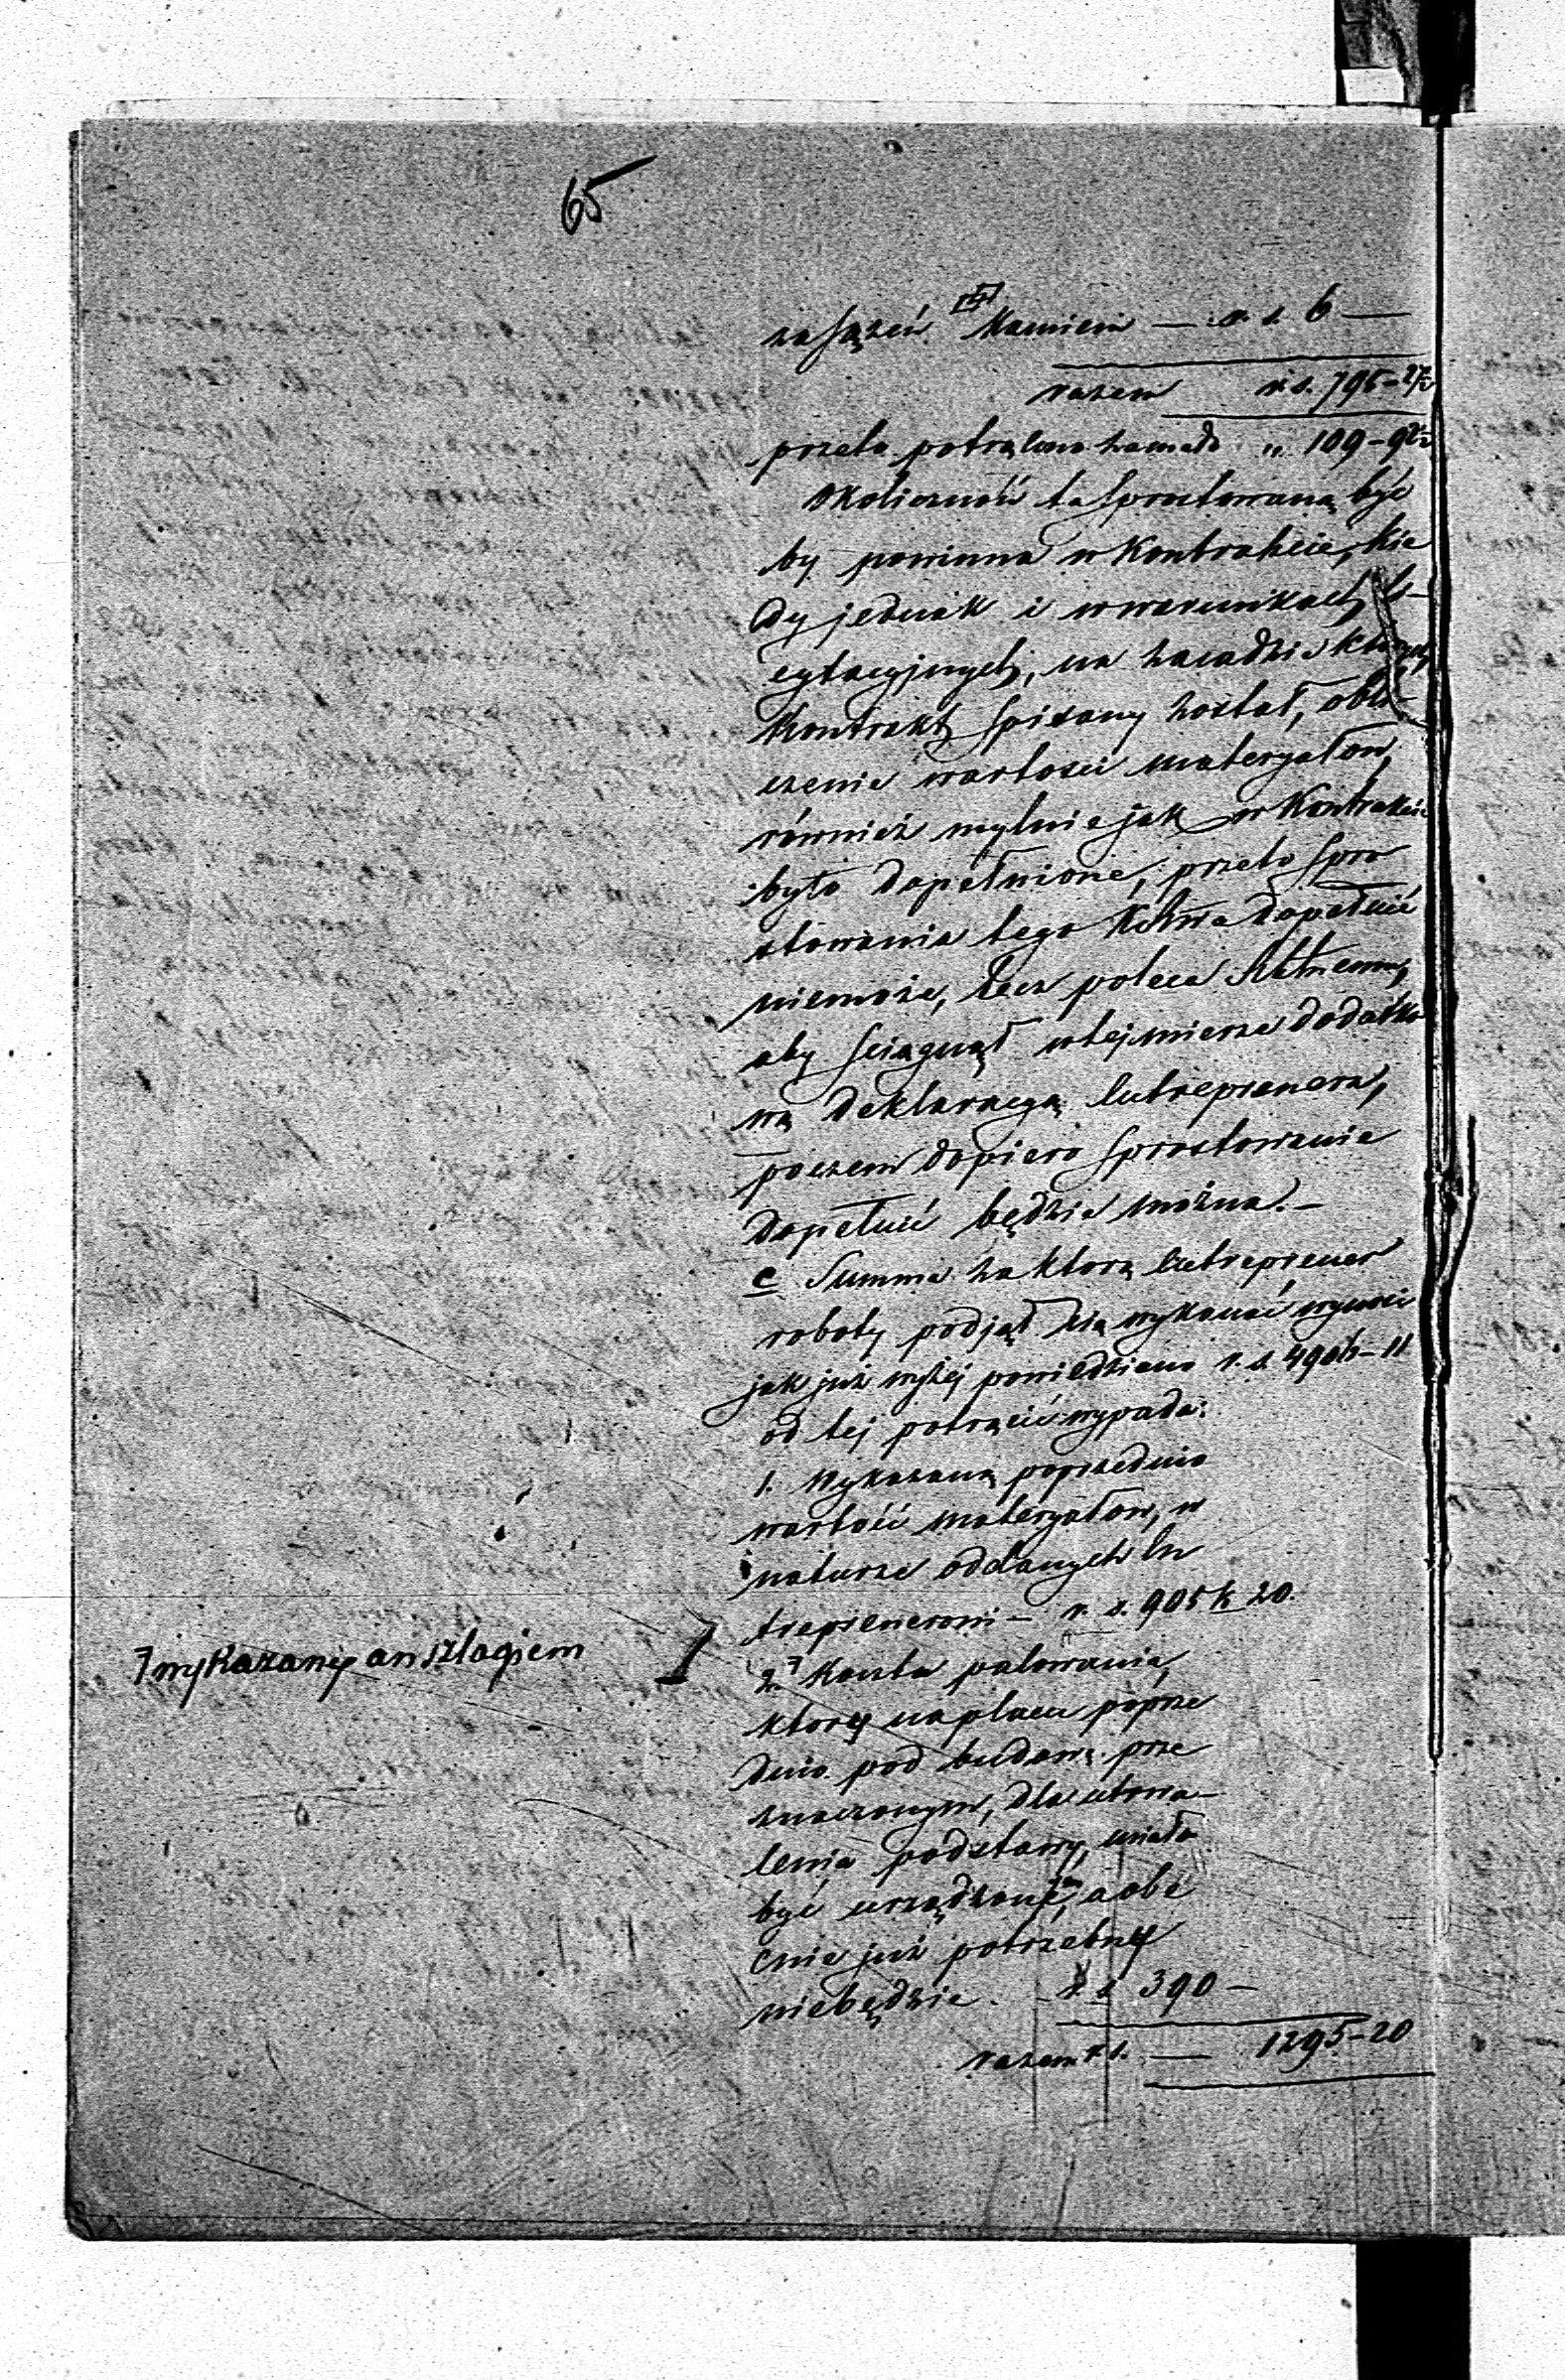 65
za sążeń Kamieni — r. s. 6 —
razem r. s. 795-27½
przeto potrącono zamało „ 109-92½
Okoliczność ta sprostowaną być
by powinna w Kontrakcie, kie
dy jednak i w warunkach li-
cytacyjnych, na zasadzie których
Kontrakt spisany został, obli-
czenie wartości materyałow,
również mylnie jak w Kontrakcie
było dopełnione, przeto spro
stowania tego dopełnić
niemoże, lecz poleca
aby sciągnął w tej mierze dodatko
wą deklaracyą Entreprenera,
poczem dopiero sprostowanie
dopełnić będzie można.-
c Summa za ktorą Entreprener
roboty podjął się wykonać wynosi
jak już wyżej powiedziano r. s. -11
od tej potrącić wypada:
1. Wykazaną poprzednio
wartość materyałow, w
naturze oddanych En
treprenerowi — r. s. 905 k 20.
7 wykazany anszlagiem
2. 7 Koszta palowania,
ktory na placu poprze
dnio pod budowę prze
znaczonym, dla utrwa-
lenia podstawy, miało
być urządzone, a obe
cnie już potrzebny
niebędzie. r. s. 390 —
razem r. s. — 1295-20